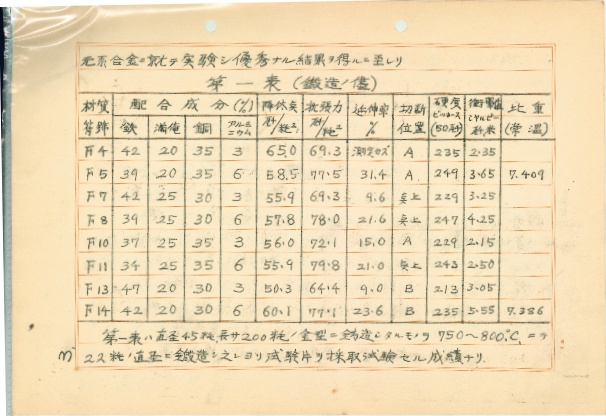 元系合金ニ就テ実験シ優秀ナル結果ヲ得ルニ至レリ
第一表 (鍛造ノ儘)
材質 配合成分 (%) 降伏点 抗張力 延伸率 切断 硬度 比重
符号 鉄 満俺 銅 アルミニウム % 位置 (50秒) (常温)
F4 42 20 35 3 65.0 69.3 測定セズ A 235 2.35
F5 39 20 35 6 58.5 77.5 31.4 A 249 3.65 7.409
F7 42 25 30 3 55.9 69.3 9.6 点上 229 3.25
F8 39 25 30 6 57.8 78.0 21.6 点上 247 4.25
F10 37 25 35 3 56.0 72.1 15.0 A 229 2.15
F11 34 25 35 6 55.9 79.8 21.0 点上 243 2.50
F13 47 20 30 3 50.3 64.4 9.0 B 213 3.05
F14 42 20 30 6 60.1 77.1 23.6 B 235 5.55 7.386
第一表ハ直径45粍長サ200粍ノ金型ニ鋳造シタルモノヲ 750~800℃ ニテ
22粍ノ直径ニ鍛造シ之レヨリ試験片ヲ採取試験セル成績ナリ.